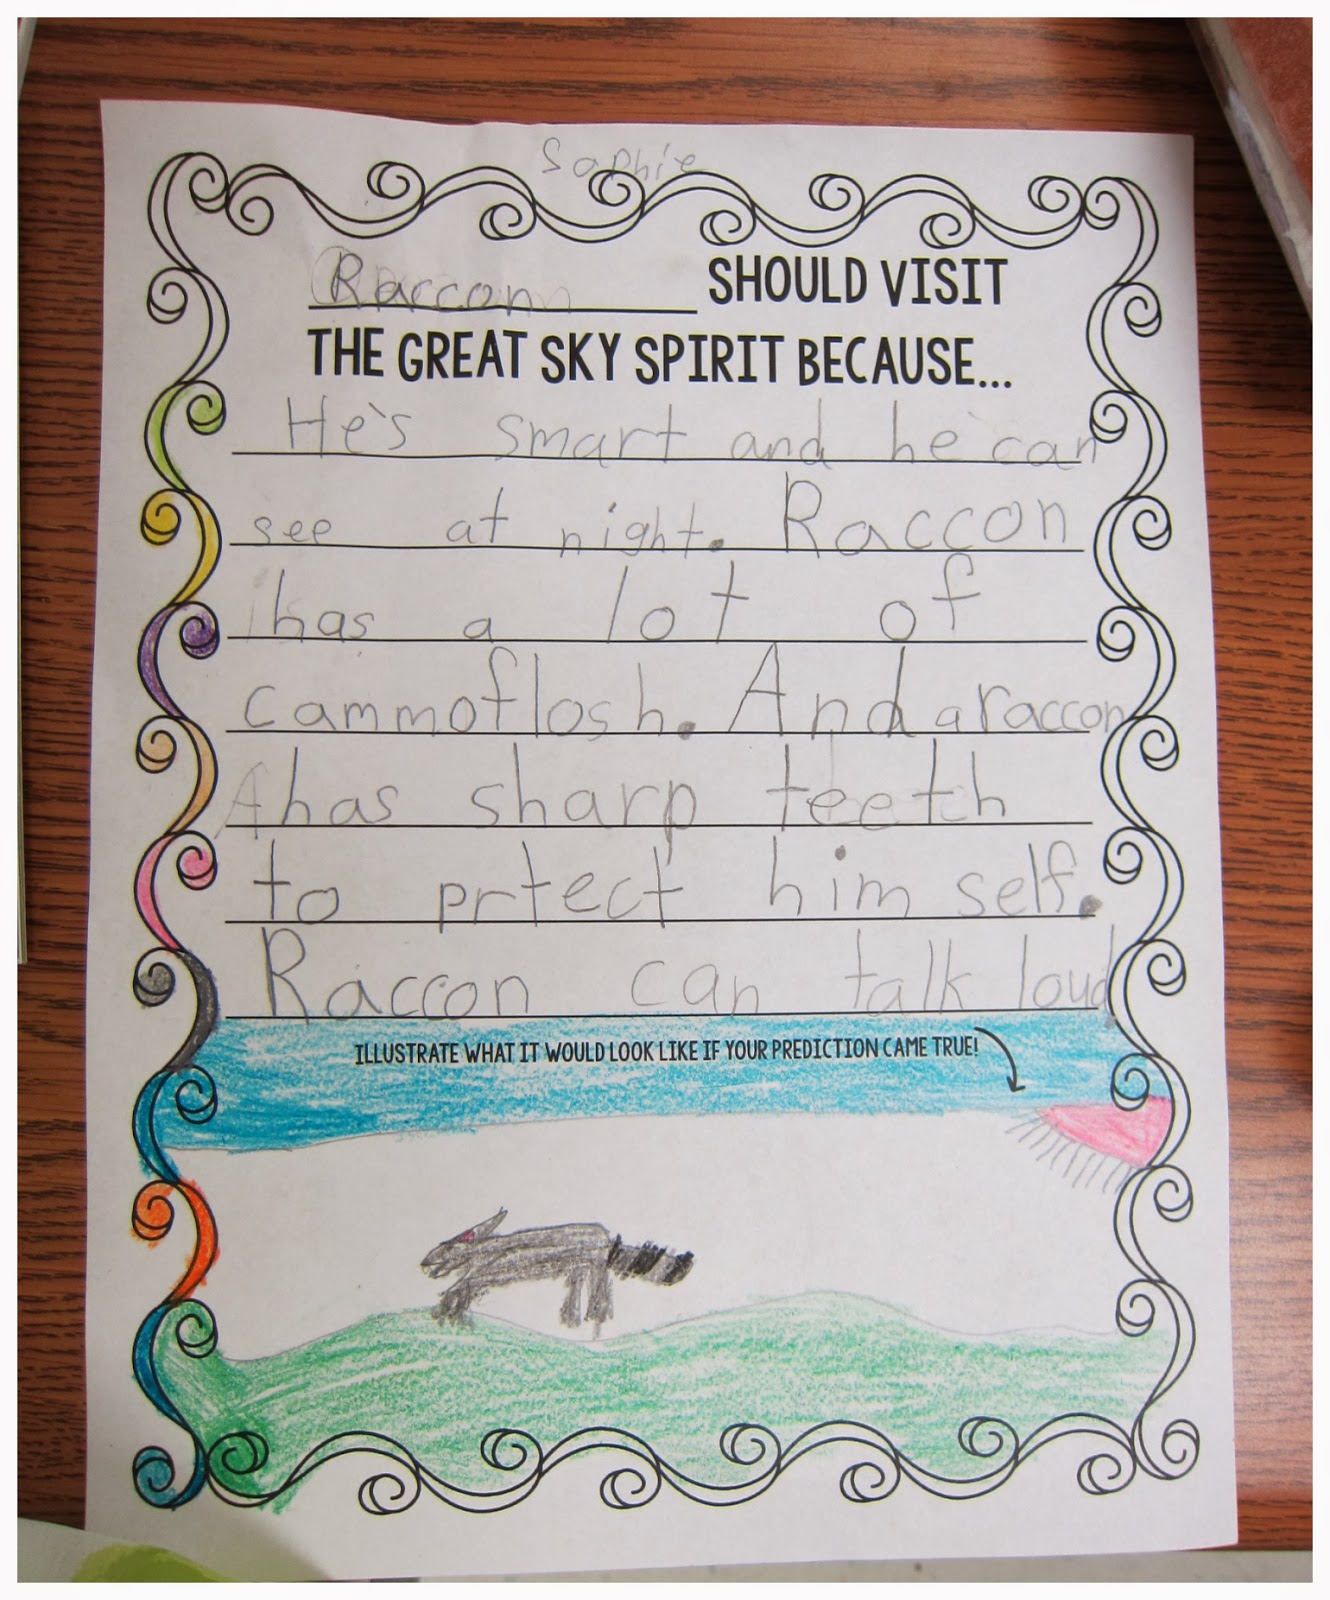 Sophie
Raccon SHOULD VISIT
THE GREAT SKY SPIRIT BECAUSE...
He's smart and he can
see at night. Raccon
has a lot of
cammoflosh. And a raccon
has sharp teeth
to prtect him self.
Raccon can talk loud
ILLUSTRATE WHAT IT WOULD LOOK LIKE IF YOUR PREDICTION CAME TRUE!